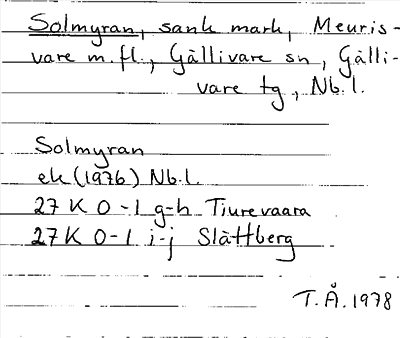 Solmyran, sank mark, Meuris-
vare m.fl., Gällivare sn, Gälli-
vare tg, Nb.l.
Solmyran
ek (1976) Nb.l.
27 K 0-1 g-h Tiurevaara
27 K 0-1 i-j Slättberg
T.Å. 1978